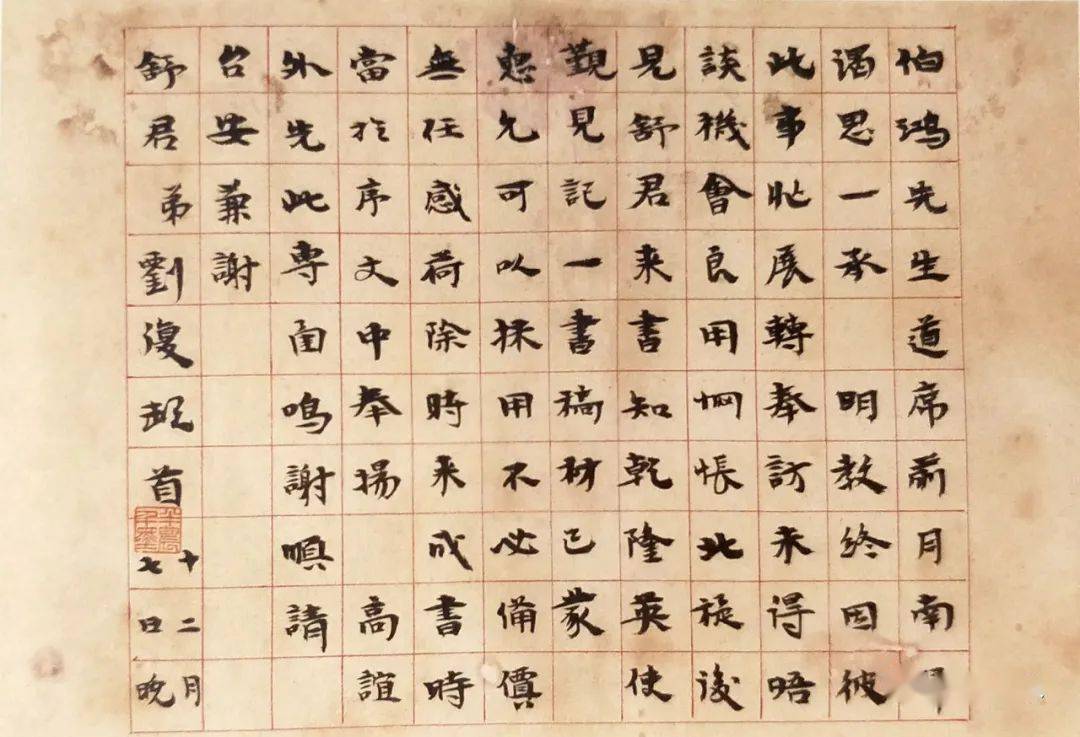 伯鴻先生道席前月南
渴思一承 明教終因彼
此事忙展轉奉訪未得晤
談機會良用惘悵北旋後
見舒君来書知乾隆英使
覲見記一書稿材已蒙
惠允可以採用不必備價
無任感荷除時来成書時
當於序文中奉揚 高誼
外先此專函鳴謝順請
台安兼謝
舒君 弟劉復頓首
十二月
七日晚